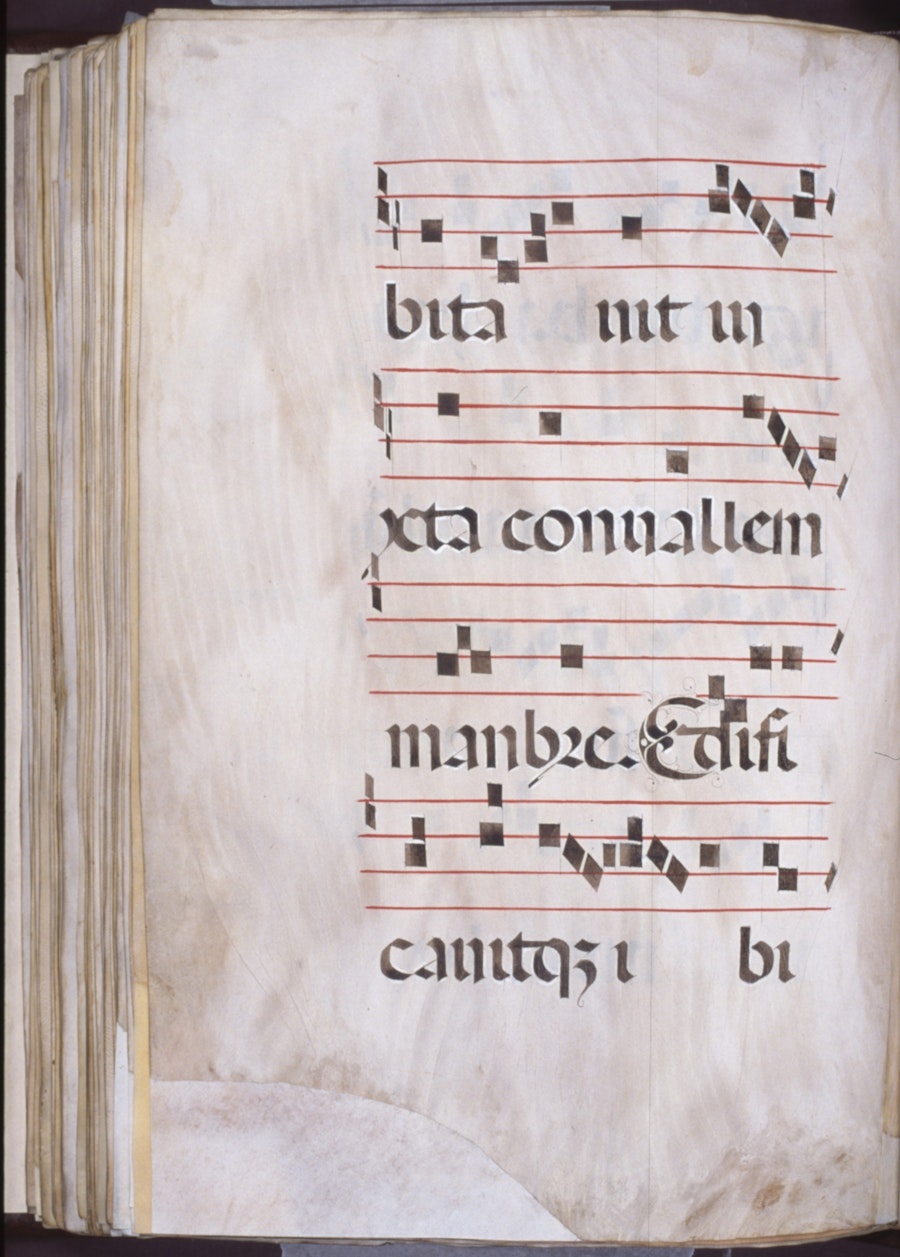 bita uit iu
xta conuallem
manbre. Edifi
cauitqꝫ i bi